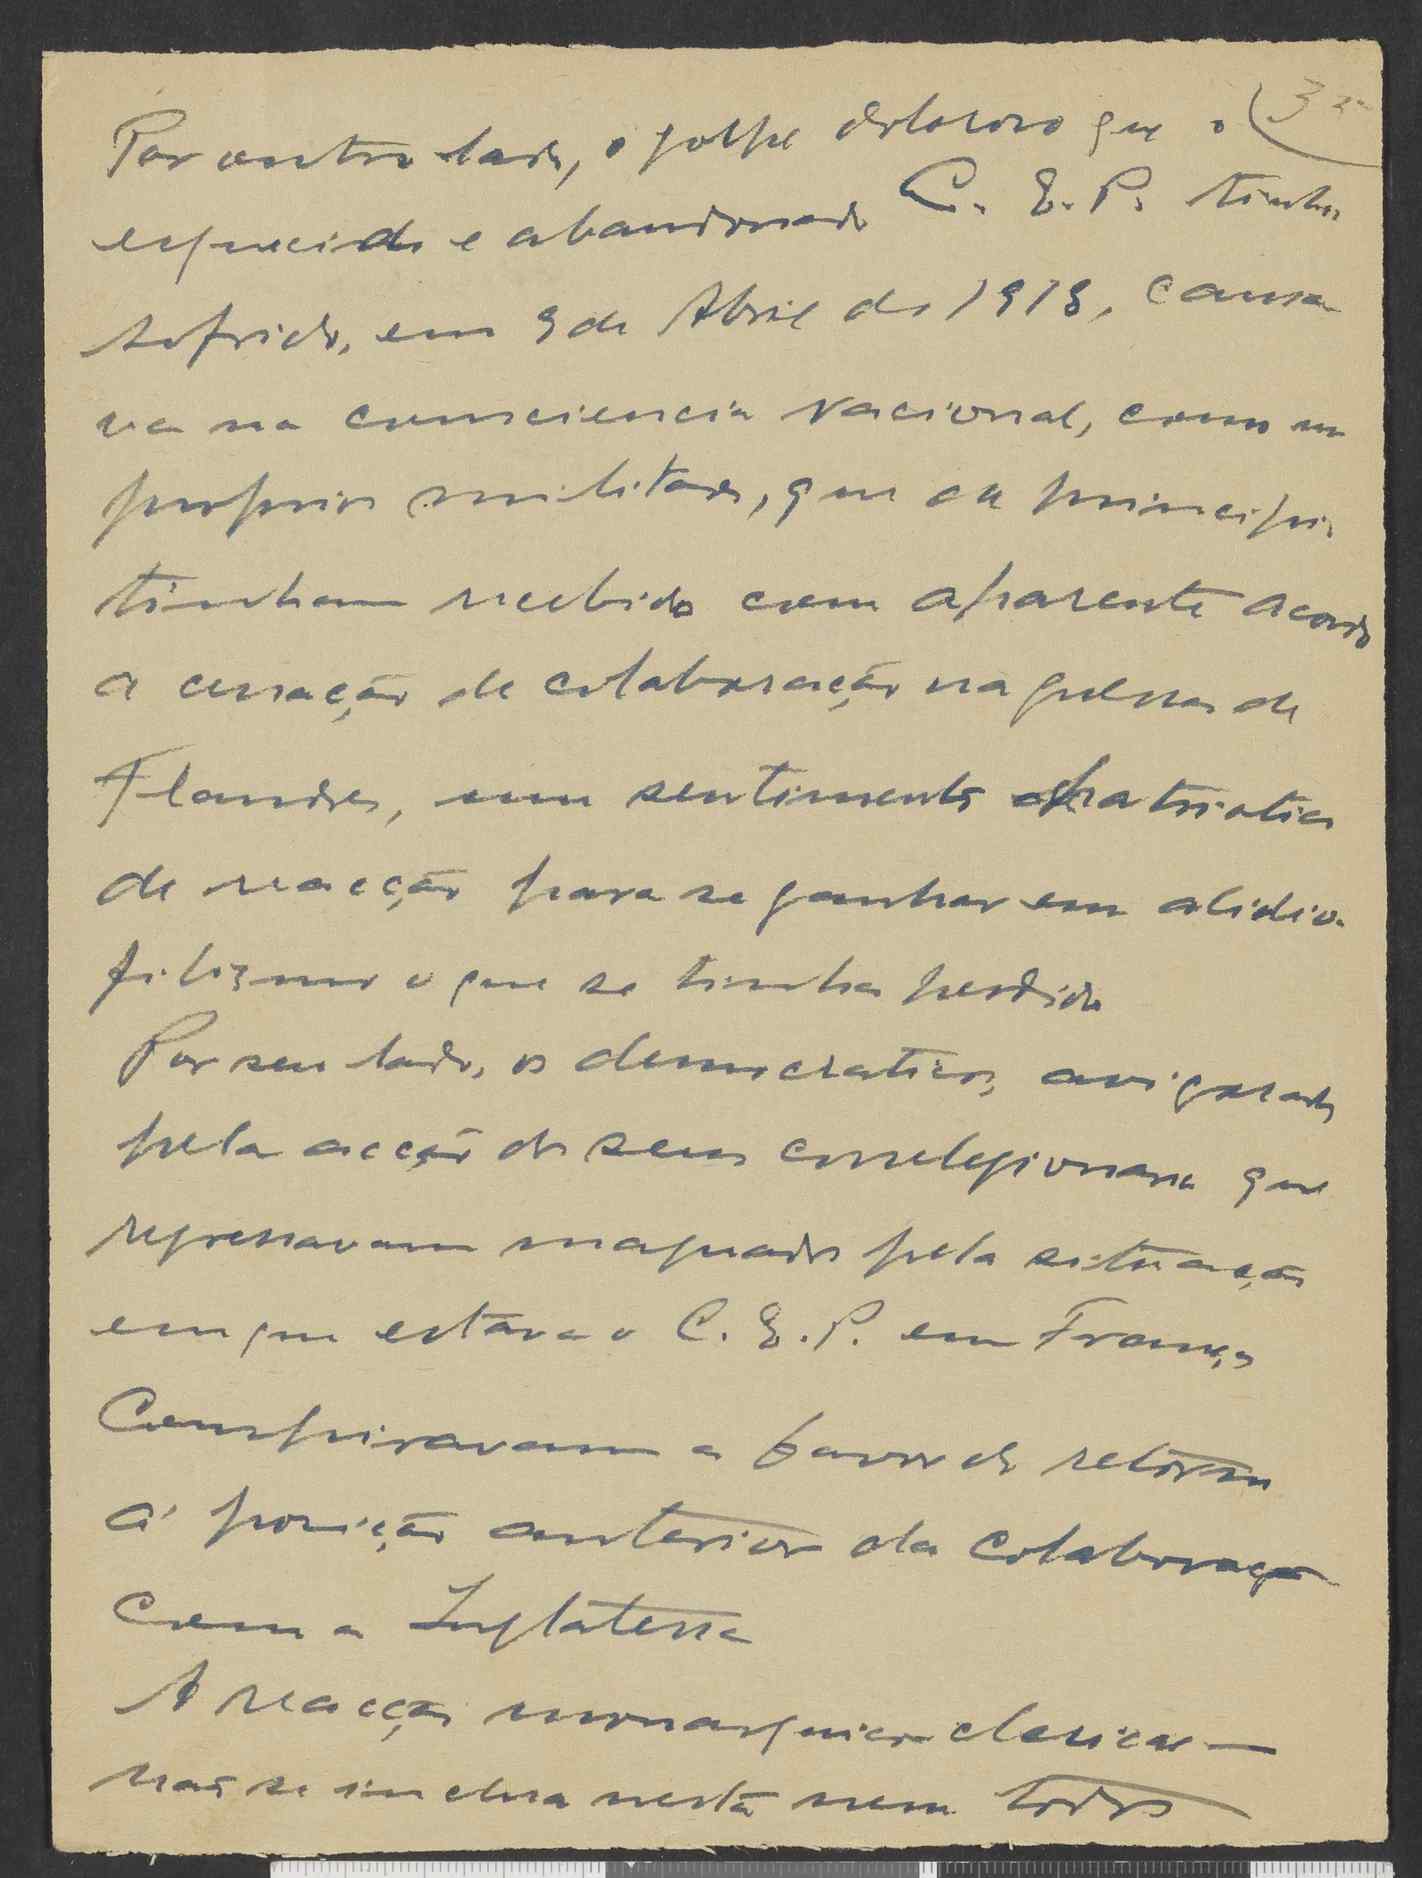 Por outro lado, o golpe doloroso que o
esquecido e abandonado C. E. P. tinha
sofrido, em 9 de Abril de 1918, causa-
va na consciencia nacional, como nos
proprios militares, que ao principio
tinham recebido com aparente acordo
a cessação de colaboração na guerra de
Flandres, um sentimento patriotico
de reacção para se ganhar em
filismo o que se tinha perdido
Por seu lado, os democraticos, avigorados
pela acção de seus correlegionarios que
regressavam magoados pela situação
em que estava o C. E. P. em França
Conspiravam a favor do retorno
á posição anterior da colaboração
com a Inglaterra
A reacção monarquico clerical —
não se inclua nesta nem todos